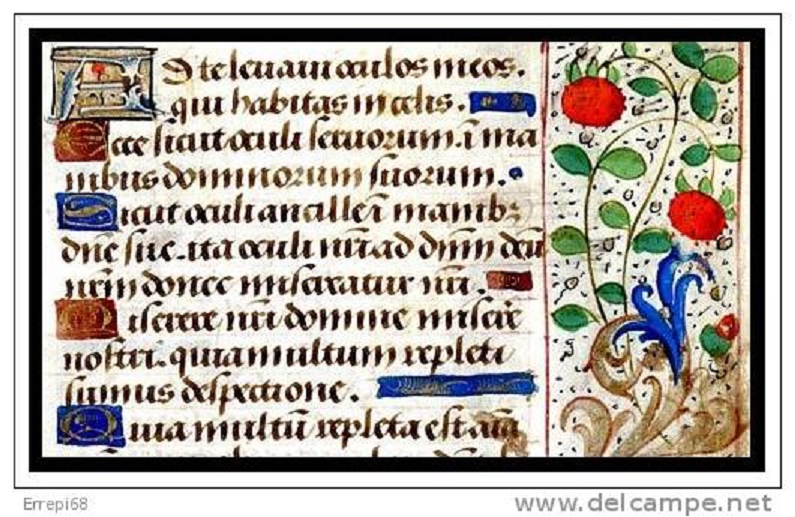 Ad te levavi oculos meos.
qui habitas in celis.
Ecce sicut oculi servorum. i ma
nibus dominorum suorum.
Sicut oculi ancille i manib3
dne sue. ita oculi nri ad dnm deu
nrm donec misereatur nri.
Miserere nri domine misere
nostri. quia multum repleti
sumus despectione.
Quia multu repleta est aia
Errepi68
www.delcampe.net